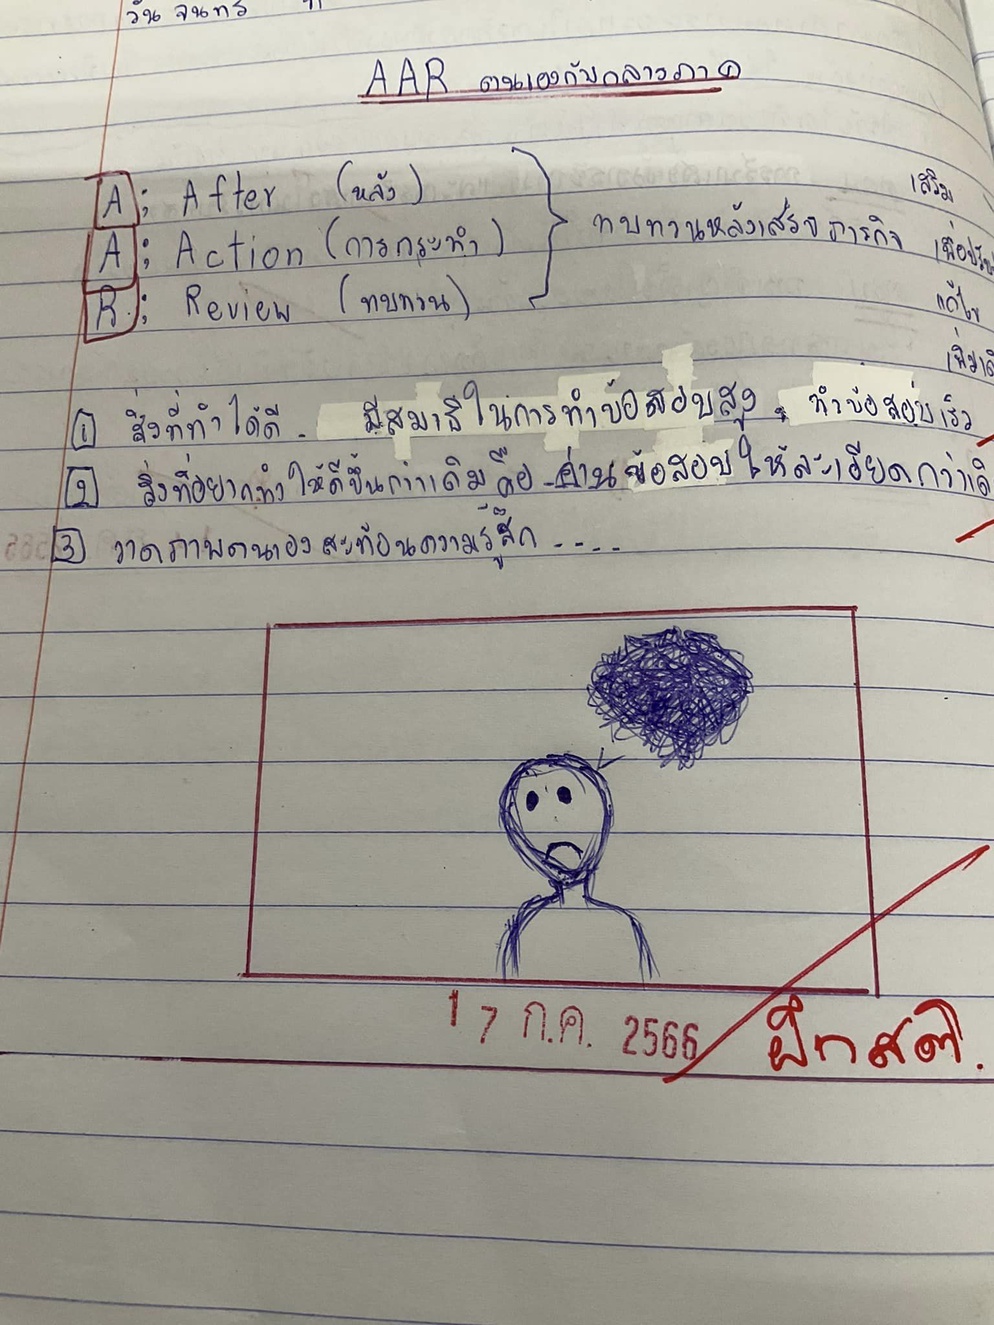 วัน จันทร์
AAR ตนเองกับกลางภาค
A ; After (หลัง)
A ; Action (การกระทำ)
R ; Review (ทบทวน)
ทบทวนหลังเสร็จภารกิจ
เสริม
เพื่อปรับ
แก้ไข
เพิ่มเติ
1 สิ่งที่ทำได้ดี - มีสมาธิในการทำข้อสอบสูง . ทำข้อสอบเร็ว
2 สิ่งที่อยากทำให้ดีขึ้นกว่าเดิม คือ อ่านข้อสอบให้ละเอียดกว่าเดิ
3 วาดภาพตนเอง สะท้อนความรู้สึก ----
17 ก.ค. 2566
ฝึกสติ.